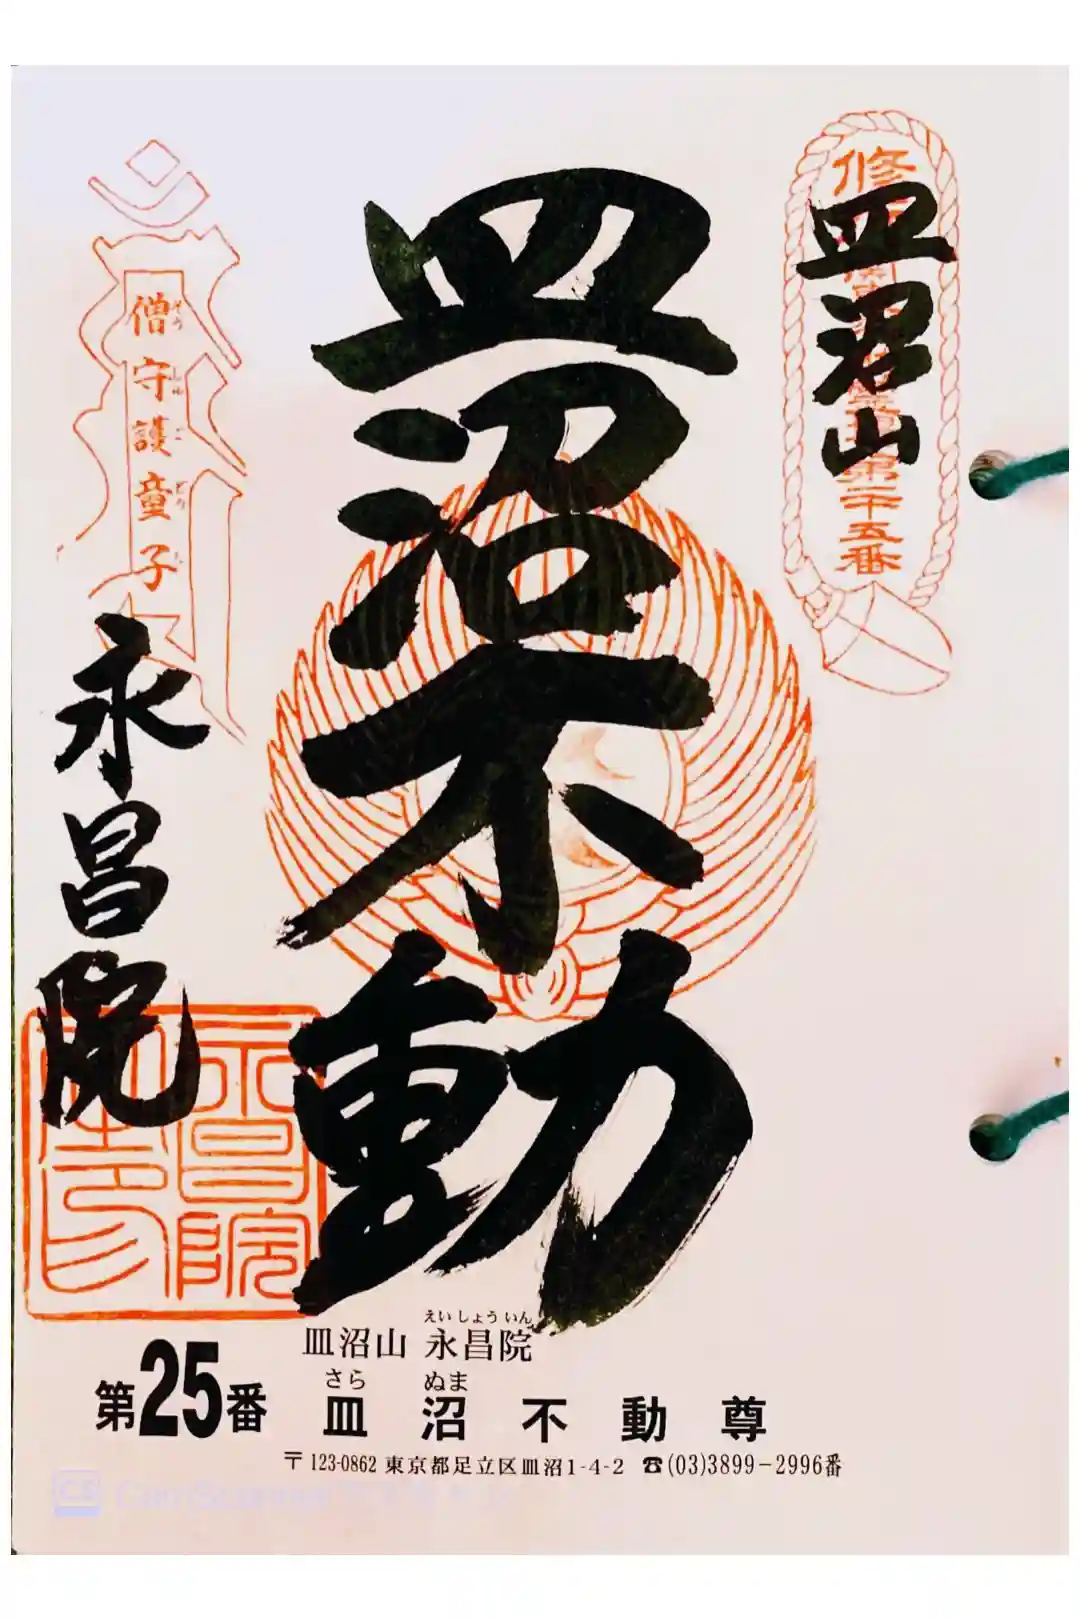 皿沼山
第二十五番
皿沼不動
僧守護童子
そうしゅごどうじ
永昌院
永昌院
えいしょういん
皿沼山 永昌院
さら ぬま
第25番 皿沼不動尊
〒123-0862 東京都足立区皿沼1-4-2 ☎(03)3899-2996番